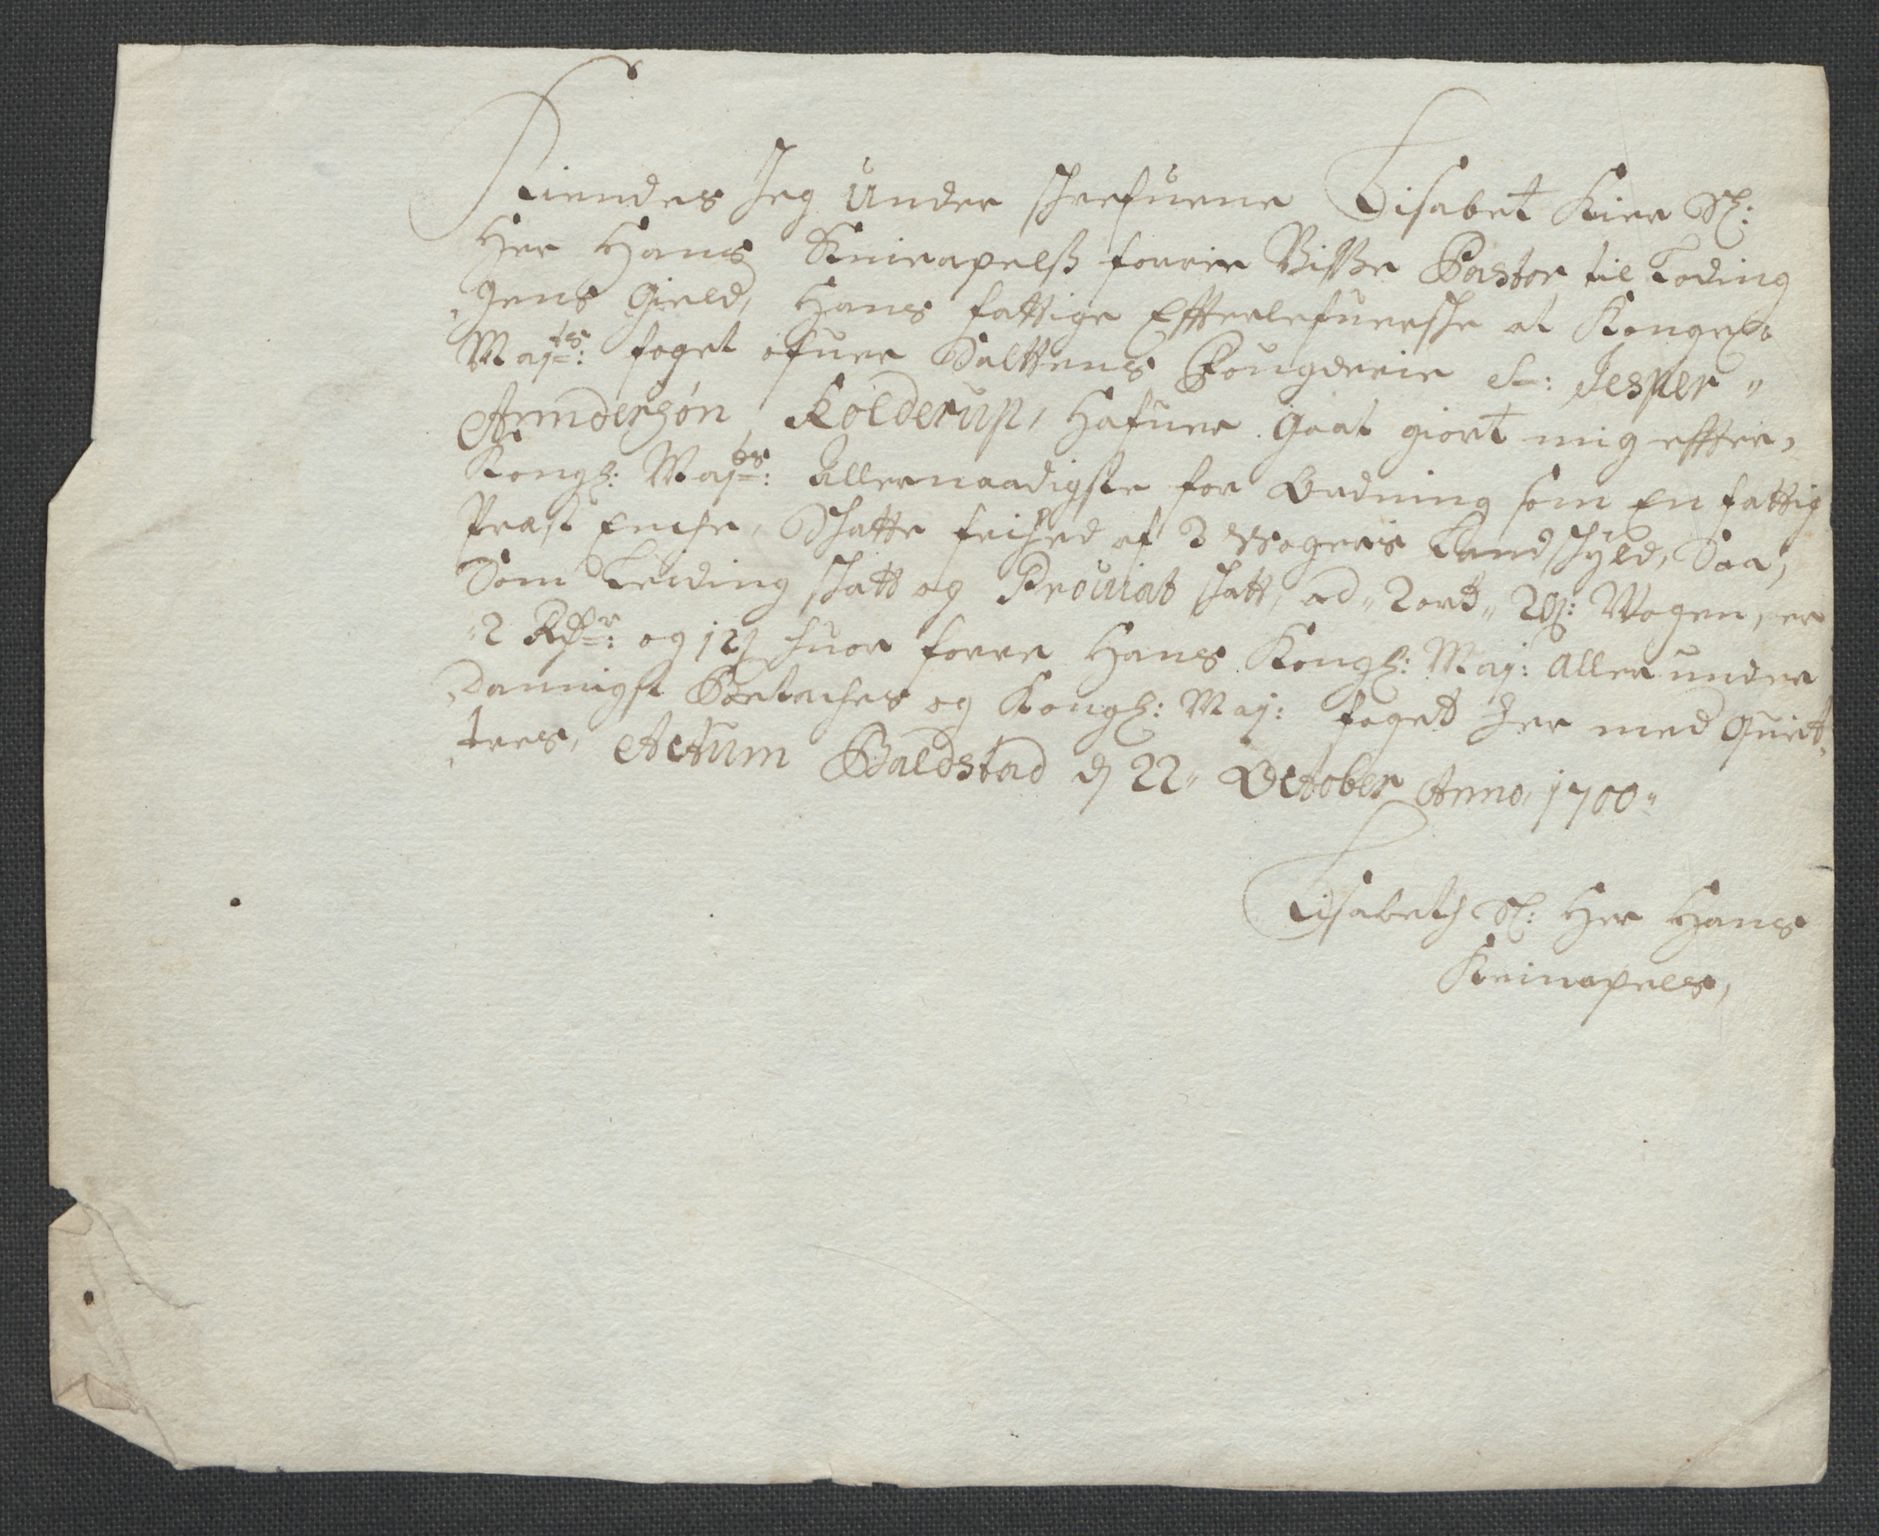 Kiendes Jeg under schrefuene Lisabet Kier Sl:
Her Hans Knirapelß forrie Pastor til Loding
gens Gield, Hans fattige Effterlefuersche at Kongel:
Maj:ts foget ofuer Salttens Fougderie Sr: Jesper
Arnnderßøn Kolderup, Hafuer Gaat giort mig effter
Kongl: Maj:ts Allernaadigste for Ordning som En fattig
Præst Enche, Schatte frihed af 3 Wogers Landschyld, Saa,
Som Leiding schatt og Prouiat schatt, ad 2 ort 2 ß: Wogen, er
2 Rdr: og 12 ß huor forre Hans Kongl: Maj: Aller under
dannigst Betaches og Kongl: Maj: foget Her med Quit
teres, Actum Baldstad d 22 October Anno, 1700
Lisabeth Sl: Her Hans
Kninapels,